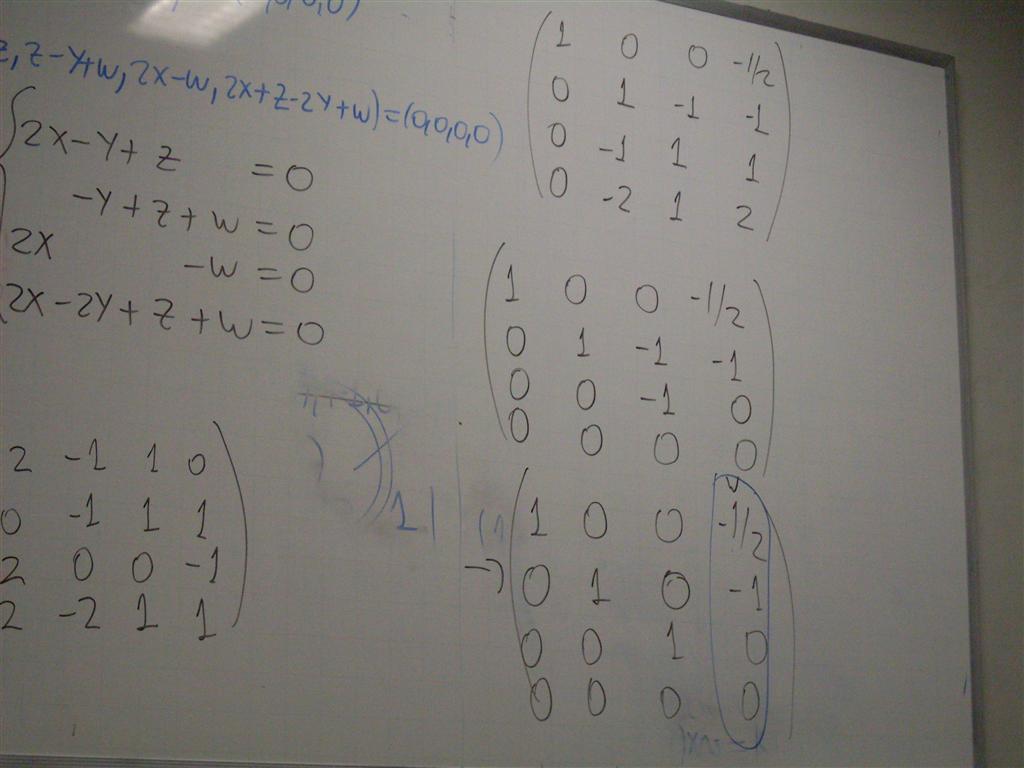 0,0,0)
z, z-y+w, 2x-w, 2x+z-2y+w)=(0,0,0,0)
2x-y+z =0
-y+z+w=0
2x -w=0
2x-2y+z+w=0
2 -1 1 0
0 -1 1 1
2 0 0 -1
2 -2 1 1
1
1 0 0 -1/2
0 1 -1 -1
0 -1 1 1
0 -2 1 2
1 0 0 -1/2
0 1 -1 -1
0 0 -1 0
0 0 0 0
→ 1 0 0 -1/2
0 1 0 -1
0 0 1 0
0 0 0 0